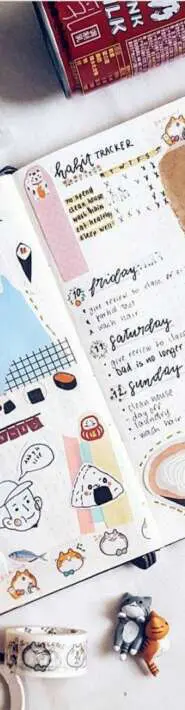 habit TRACKER
M T W T F S
no spend
clean house
wash hair
eat healthy
sleep well
10. friday
give review to class
wash hair
11. saturday
give review to class
Dad is no longer
12. sunday
clean house
day off
laundry
wash hair